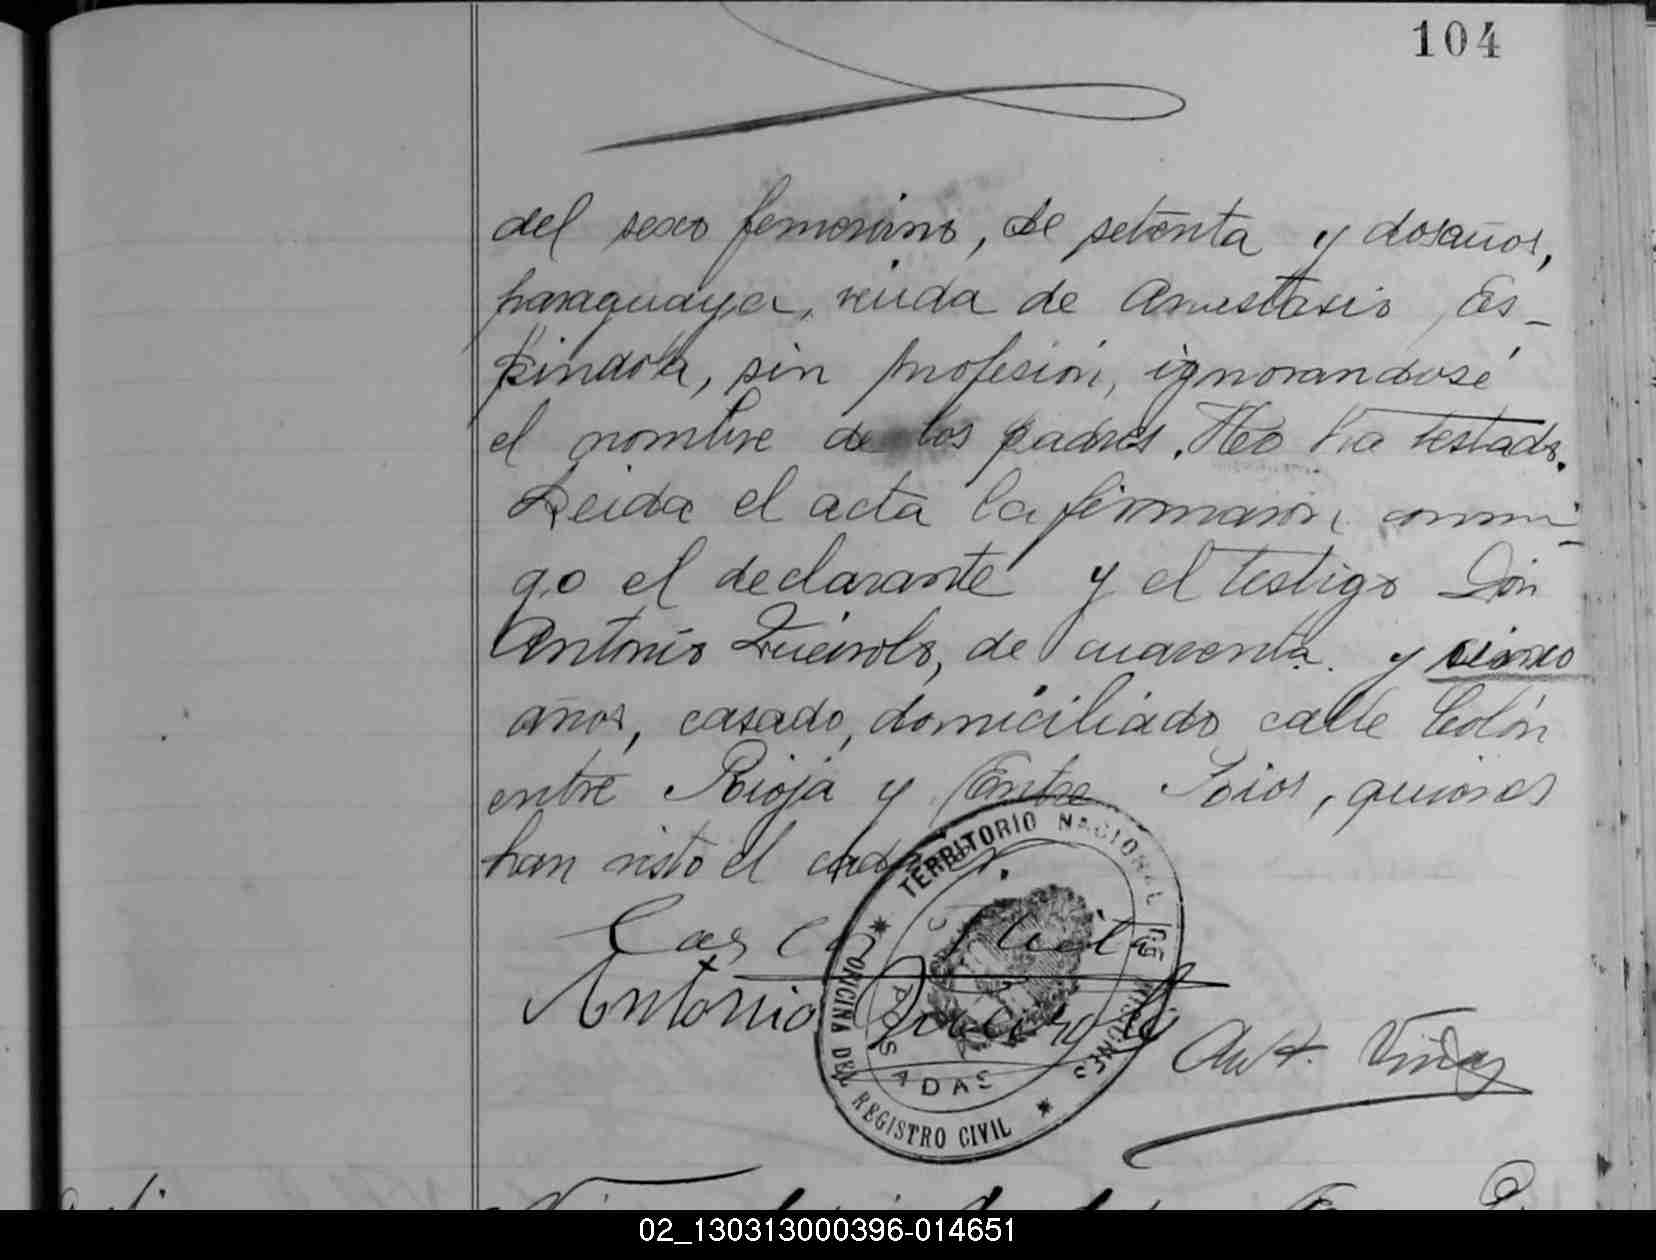 104
del sexo femenino, de setenta y dos años,
paraguaya, viuda de Anastasio Es-
pindola, sin profesión, ignorandosé
el nombre de los padres. No ha testado.
Leida el acta la firmaron conmi-
go el declarante y el testigo Don
Antonio Queirolo, de cuarenta y cinco
años, casado, domiciliado calle Colón
entre Rioja y Entre Rios, quienes
han visto el cadaver.
TERRITORIO NACIONAL DE MISIONES
Antonio Queirolo
POSADAS
OFICINA DEL REGISTRO CIVIL
02_130313000396-014651